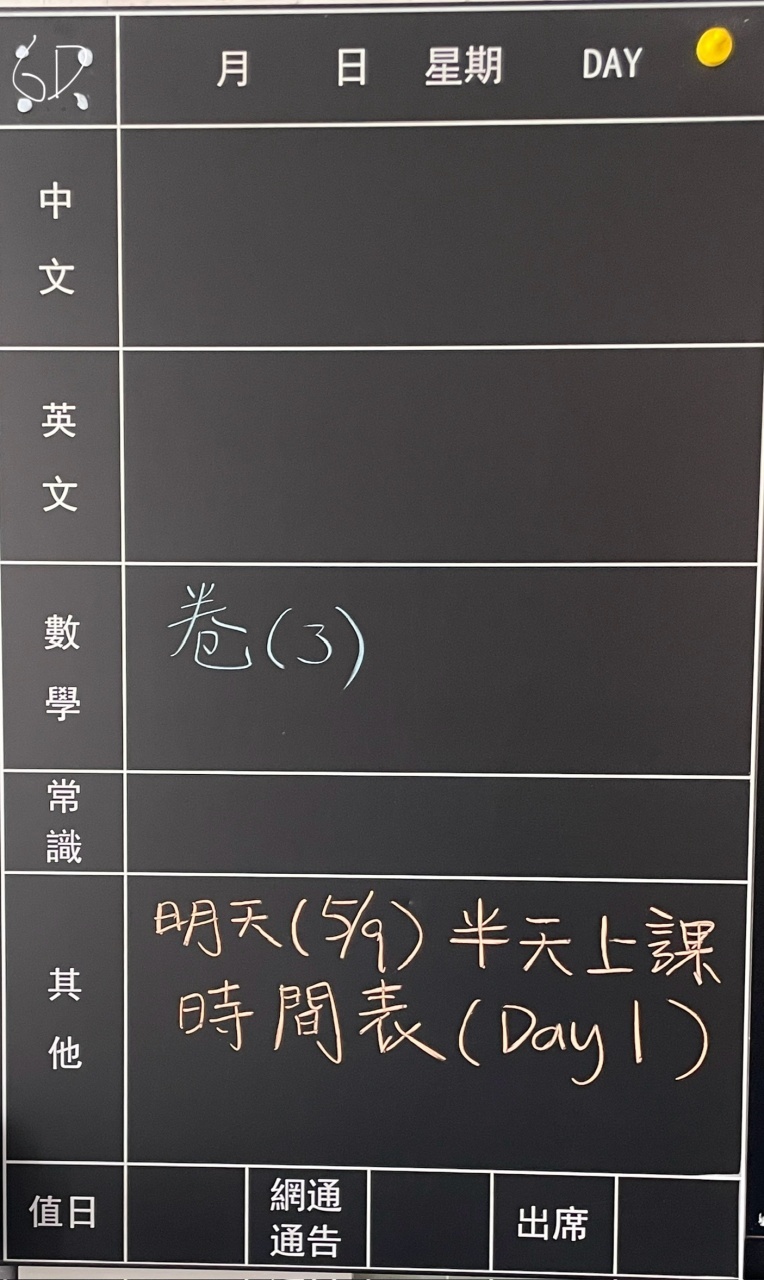 6D
月 日 星期 DAY
中文
英文
數學
卷(3)
常識
其他
明天(5/9)半天上課
時間表(Day 1)
值日
網通通告
出席